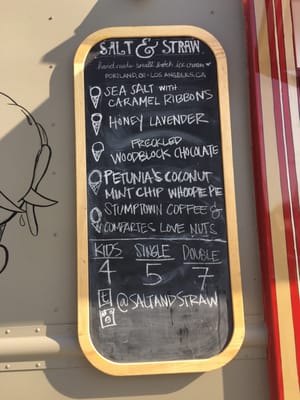 SALT & STRAW
handmade small batch ice cream
PORTLAND, OR · LOS ANGELES, CA
SEA SALT WITH
CARAMEL RIBBONS
HONEY LAVENDER
FRECKLED
WOODBLOCK CHOCOLATE
PETUNIA'S COCONUT
MINT CHIP WHOOPIE PIE
STUMPTOWN COFFEE &
COMPARTES LOVE NUTS
KIDS SINGLE DOUBLE
4 5 7
@SALTANDSTRAW